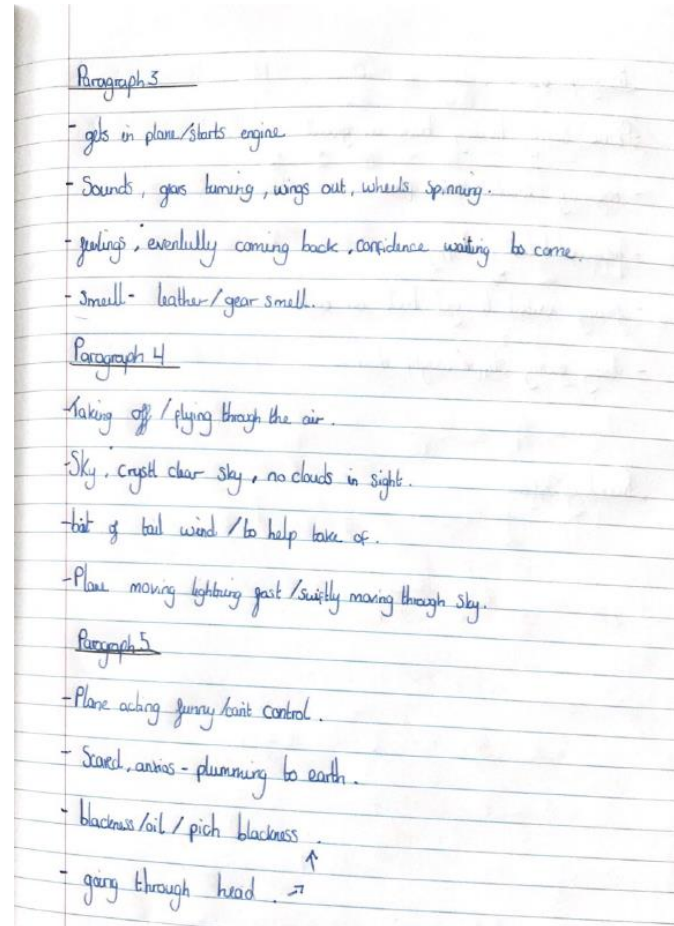 Paragraph 3
- gets in plane/starts engine
- Sounds, gears turning, wings out, wheels spinning.
- feelings, eventully coming back, confidence waiting to come.
- Smell - leather/gear smell.
Paragraph 4
-Taking off / flying through the air.
-Sky, crystl clear sky, no clouds in sight.
-bit of tail wind / to help take of.
-Plane moving lightning fast / swiftly moving through sky.
Paragraph 5
-Plane acting funny/can't control.
- Scared, anxios - plumming to earth.
- blackness/oil / pich blackness.
↑
- going through head. ↗